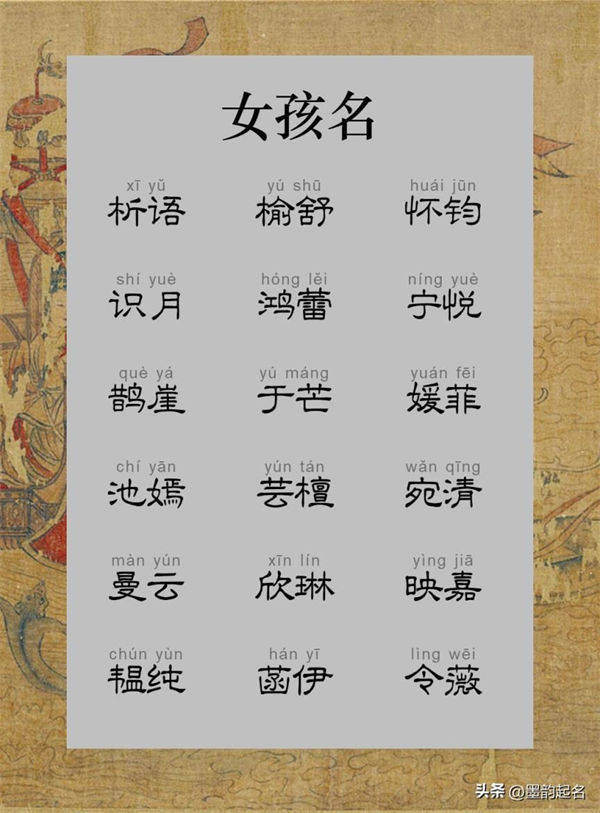 女孩名
xī yǔ yú shū huái jūn
析语 榆舒 怀钧
shí yuè hóng lěi níng yuè
识月 鸿蕾 宁悦
què yá yú máng yuán fēi
鹊崖 于芒 媛菲
chí yān yún tán wǎn qīng
池嫣 芸檀 宛清
màn yún xīn lín yìng jiā
曼云 欣琳 映嘉
chún yùn hán yī lìng wēi
韫纯 菡伊 令薇
头条 @墨韵起名